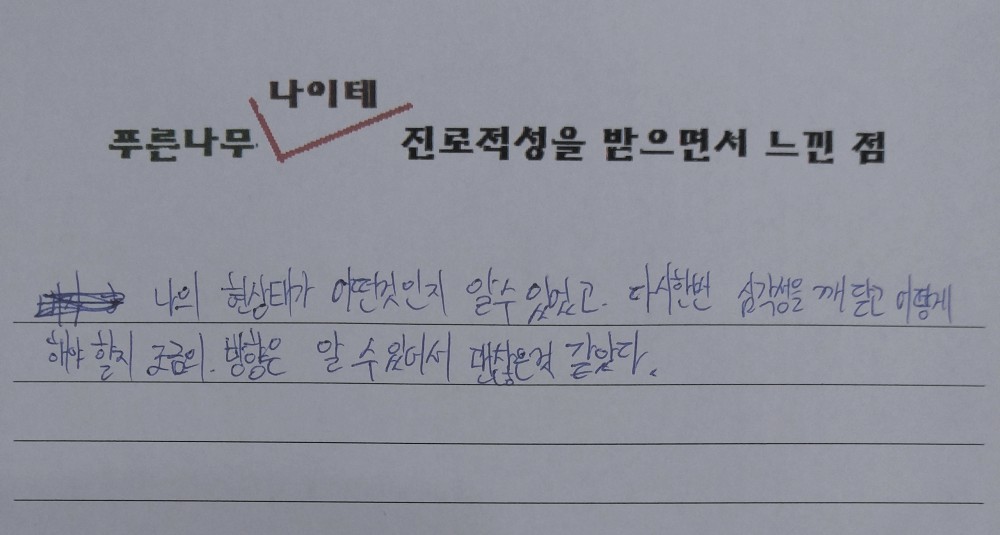 나이테
푸른나무 진로적성을 받으면서 느낀 점
나의 현상태가 어떤것인지 알수 있었고. 다시한번 심각성을 깨닫고 어떻게
해야 할지 조금의. 방향은 알 수 있어서 괜찮은것 같았다.